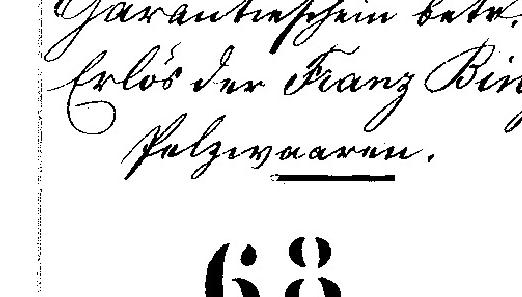 Garantieschein betr.
Erlös der Franz
Pelzwaaren.
68